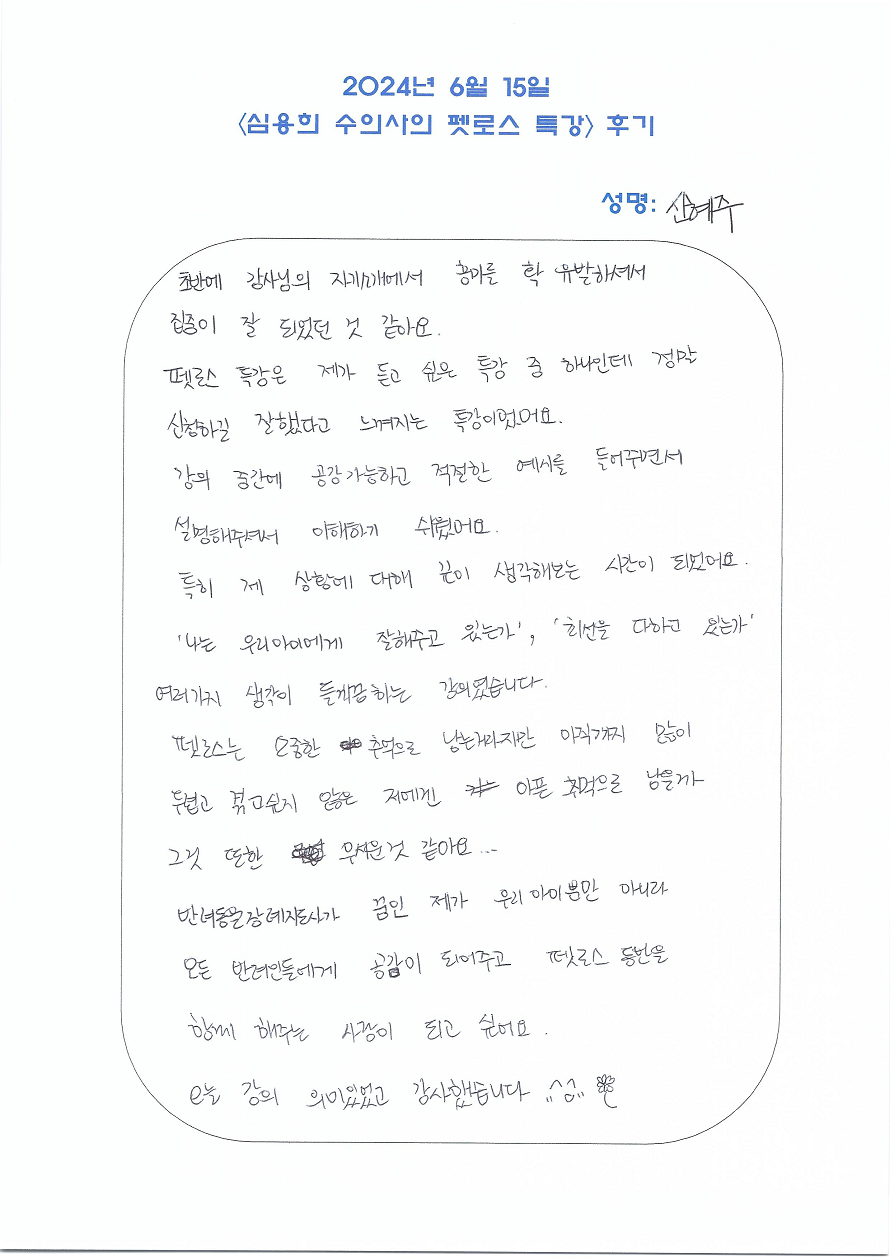 2024년 6월 15일
<심용희 수의사의 펫로스 특강> 후기
성명: 신혜주
초반에 강사님의 자기소개에서 흥미를 확 유발하셔서
집중이 잘 되었던 것 같아요.
펫로스 특강은 제가 듣고 싶은 특강 중 하나인데 정말
신청하길 잘했다고 느껴지는 특강이었어요.
강의 중간에 공감가능하고 적절한 예시를 들어주면서
설명해주셔서 이해하기 쉬웠어요.
특히 제 상황에 대해 깊이 생각해보는 시간이 되었어요.
'나는 우리아이에게 잘해주고 있는가', '최선을 다하고 있는가'
여러가지 생각이 들게끔하는 강의였습니다.
펫로스는 소중한 추억으로 남는거라지만 아직까지 많이
두렵고 겪고싶지 않은 저에겐 아픈 추억으로 남을까
그것 또한 무서운것 같아요...
반려동물장례지도사가 꿈인 제가 우리아이뿐만 아니라
모든 반려인들에게 공감이 되어주고 펫로스 동반을
함께 해주는 사람이 되고 싶어요.
오늘 강의 의미있었고 감사했습니다 ,,^_^,,